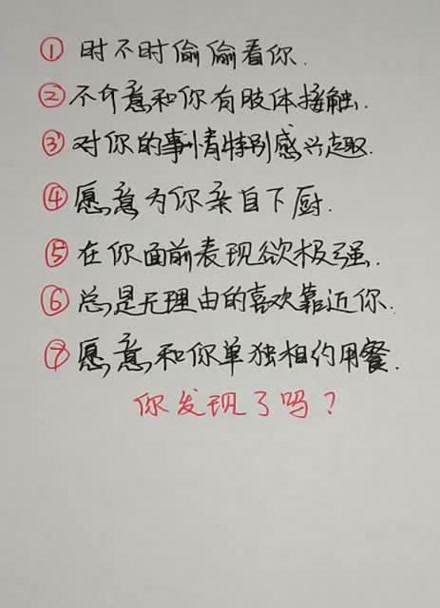 ① 时不时偷偷看你.
② 不介意和你有肢体接触.
③ 对你的事情特别感兴趣.
④ 愿意为你亲自下厨.
⑤ 在你面前表现欲极强.
⑥ 总是无理由的喜欢靠近你.
⑦ 愿意和你单独相约用餐.
你发现了吗?